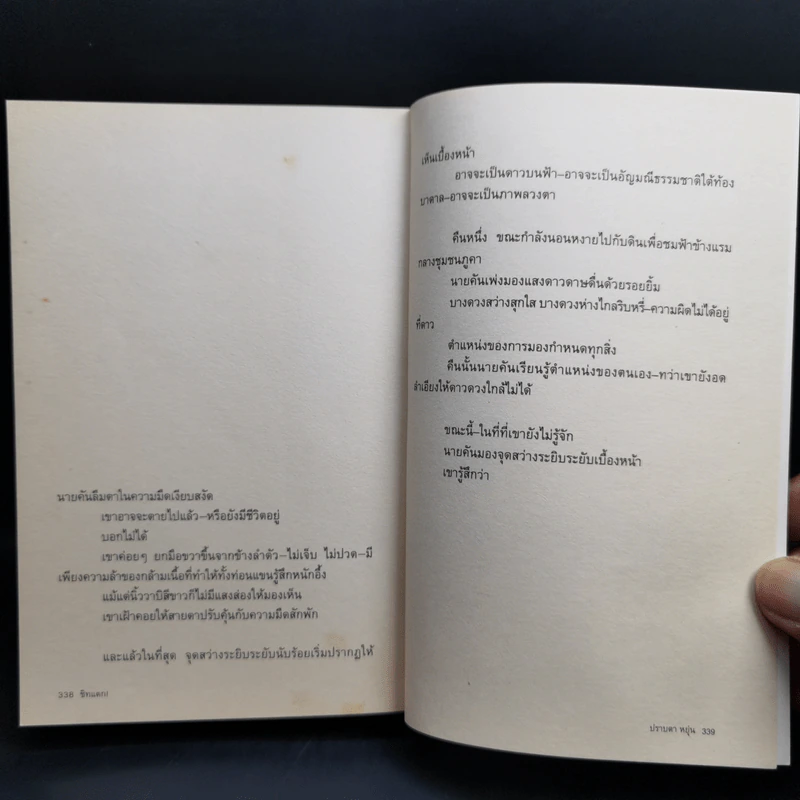 นายคันลืมตาในความมืดเงียบสงัด
เขาอาจจะตายไปแล้ว–หรือยังมีชีวิตอยู่
บอกไม่ได้
เขาค่อยๆ ยกมือขวาขึ้นจากข้างลำตัว–ไม่เจ็บ ไม่ปวด–มี
เพียงความล้าของกล้ามเนื้อที่ทำให้ทั้งท่อนแขนรู้สึกหนักอึ้ง
แม้แต่นิ้ววาบิสีขาวก็ไม่มีแสงส่องให้มองเห็น
เขาเฝ้าคอยให้สายตาปรับคุ้นกับความมืดสักพัก
และแล้วในที่สุด จุดสว่างระยิบระยับนับร้อยเริ่มปรากฏให้
338 ชิทแตก!
เห็นเบื้องหน้า
อาจจะเป็นดาวบนฟ้า–อาจจะเป็นอัญมณีธรรมชาติใต้ท้อง
บาดาล–อาจจะเป็นภาพลวงตา
คืนหนึ่ง ขณะกำลังนอนหงายไปกับดินเพื่อชมฟ้าข้างแรม
กลางชุมชนภูคา
นายคันเพ่งมองแสงดาวดาษดื่นด้วยรอยยิ้ม
บางดวงสว่างสุกใส บางดวงห่างไกลริบหรี่–ความผิดไม่ได้อยู่
ที่ดาว
ตำแหน่งของการมองกำหนดทุกสิ่ง
คืนนั้นนายคันเรียนรู้ตำแหน่งของตนเอง–ทว่าเขายังอด
ลำเอียงให้ดาวดวงใกล้ไม่ได้
ขณะนี้–ในที่ที่เขายังไม่รู้จัก
นายคันมองจุดสว่างระยิบระยับเบื้องหน้า
เขารู้สึกว่า
ปราบดา หยุ่น 339